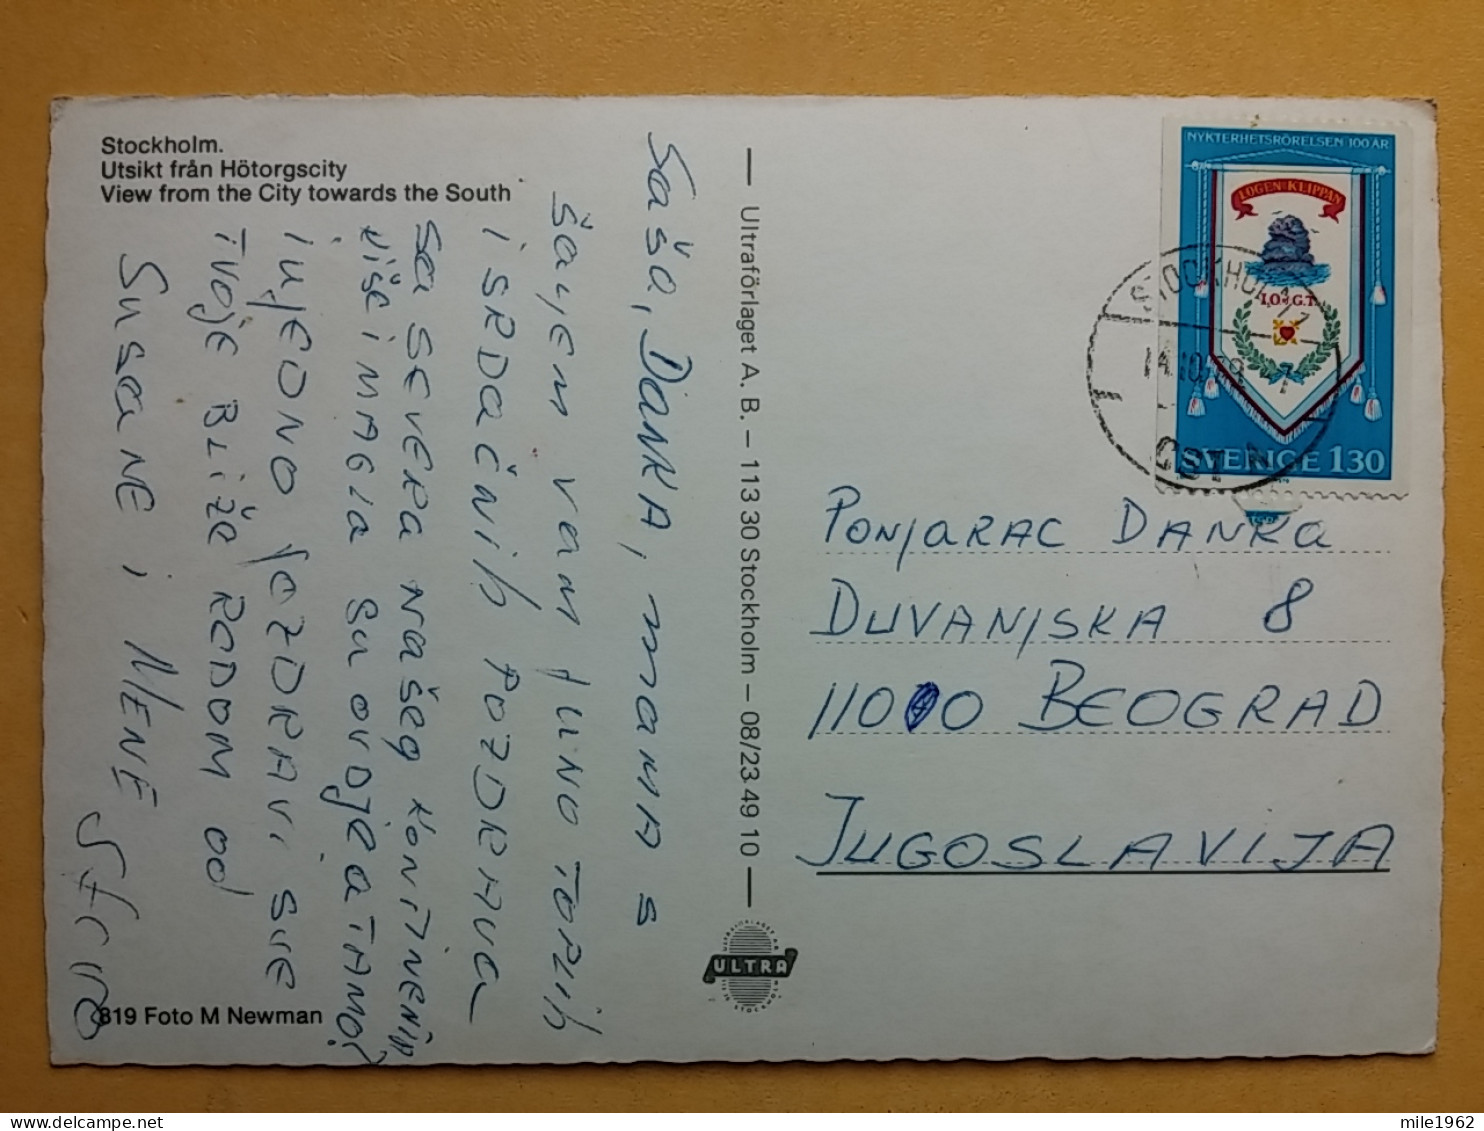 Stockholm.
Utsikt från Hötorgscity
View from the City towards the South
Saša, Danka, mama s
šaljem vam puno toplih
i srdačnih pozdrava
sa severa našeg kontinenta
kiše i magla su ovdje a tamo?
Ujedno pozdravi sve
tvoje bliže rodom od
Susane i Mene
819 Foto M Newman
Ultraförlaget A. B. – 113 30 Stockholm – 08/23 49 10
ULTRA
NYKTERHETSRÖRELSEN 100 ÅR
LOGEN KLIPPAN
I.O.G.T.
SVERIGE 130
STOCKHOLM
14.10.79
Ponjarac Danka
Duvanjska 8
11000 Beograd
Jugoslavija
mile1962